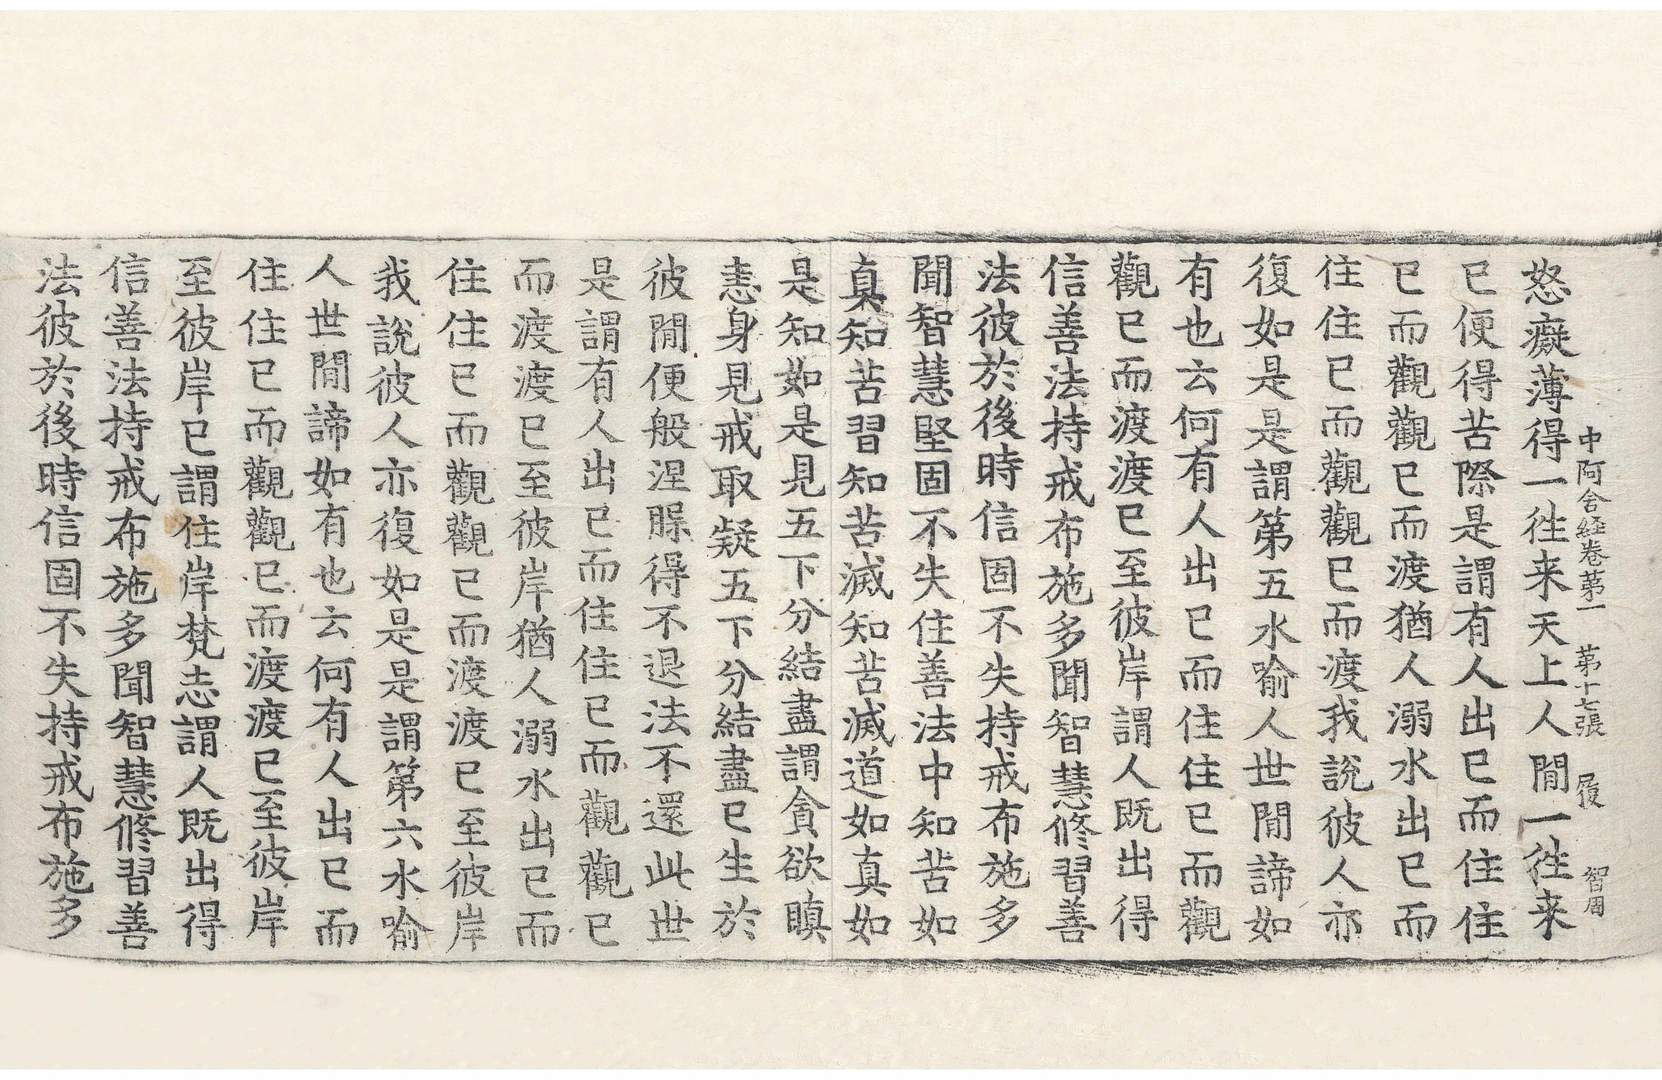 中阿含経卷苐一 苐十七張 履 智周
怒癡薄得一徃来天上人間一徃来
已便得苦際是謂有人出已而住住
已而觀觀已而渡猶人溺水出已而
住住已而觀觀已而渡我說彼人亦
復如是是謂第五水喻人世間諦如
有也云何有人出已而住住已而觀
觀已而渡渡已至彼岸謂人既出得
信善法持戒布施多聞智慧修習善
法彼於後時信固不失持戒布施多
聞智慧堅固不失住善法中知苦如
真知苦習知苦滅知苦滅道如真如
是知如是見五下分結盡謂貪欲瞋
恚身見戒取疑五下分結盡已生於
彼間便般涅槃得不退法不還此世
是謂有人出已而住住已而觀觀已
而渡渡已至彼岸猶人溺水出已而
住住已而觀觀已而渡渡已至彼岸
我說彼人亦復如是是謂第六水喻
人世間諦如有也云何有人出已而
住住已而觀觀已而渡渡已至彼岸
至彼岸已謂住岸梵志謂人既出得
信善法持戒布施多聞智慧修習善
法彼於後時信固不失持戒布施多